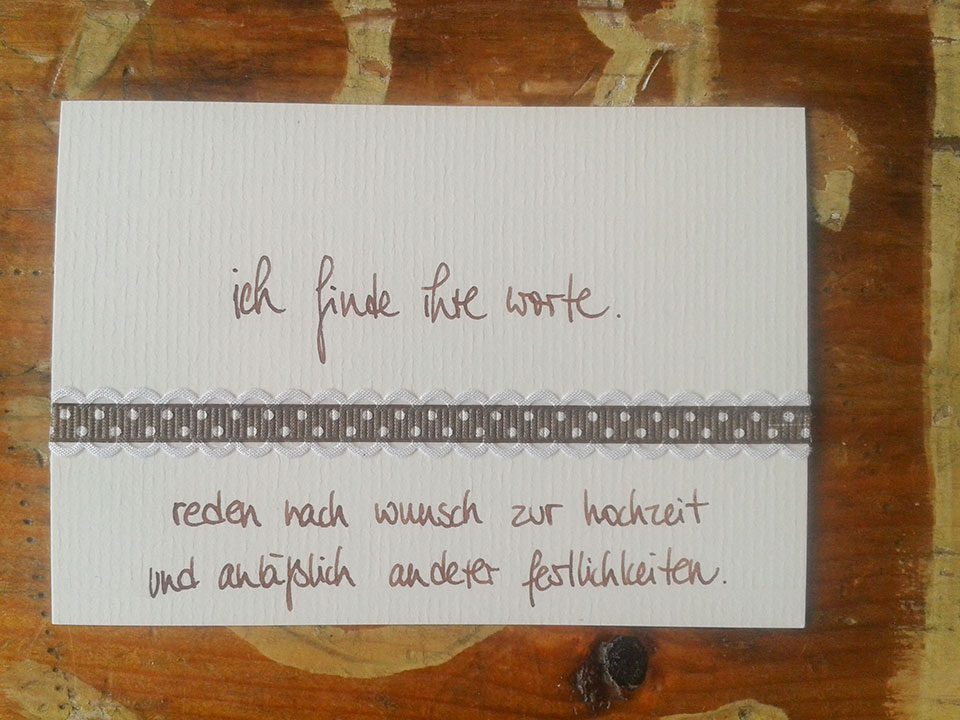 ich finde ihre worte.
reden nach wunsch zur hochzeit
und anläßlich anderer festlichkeiten.